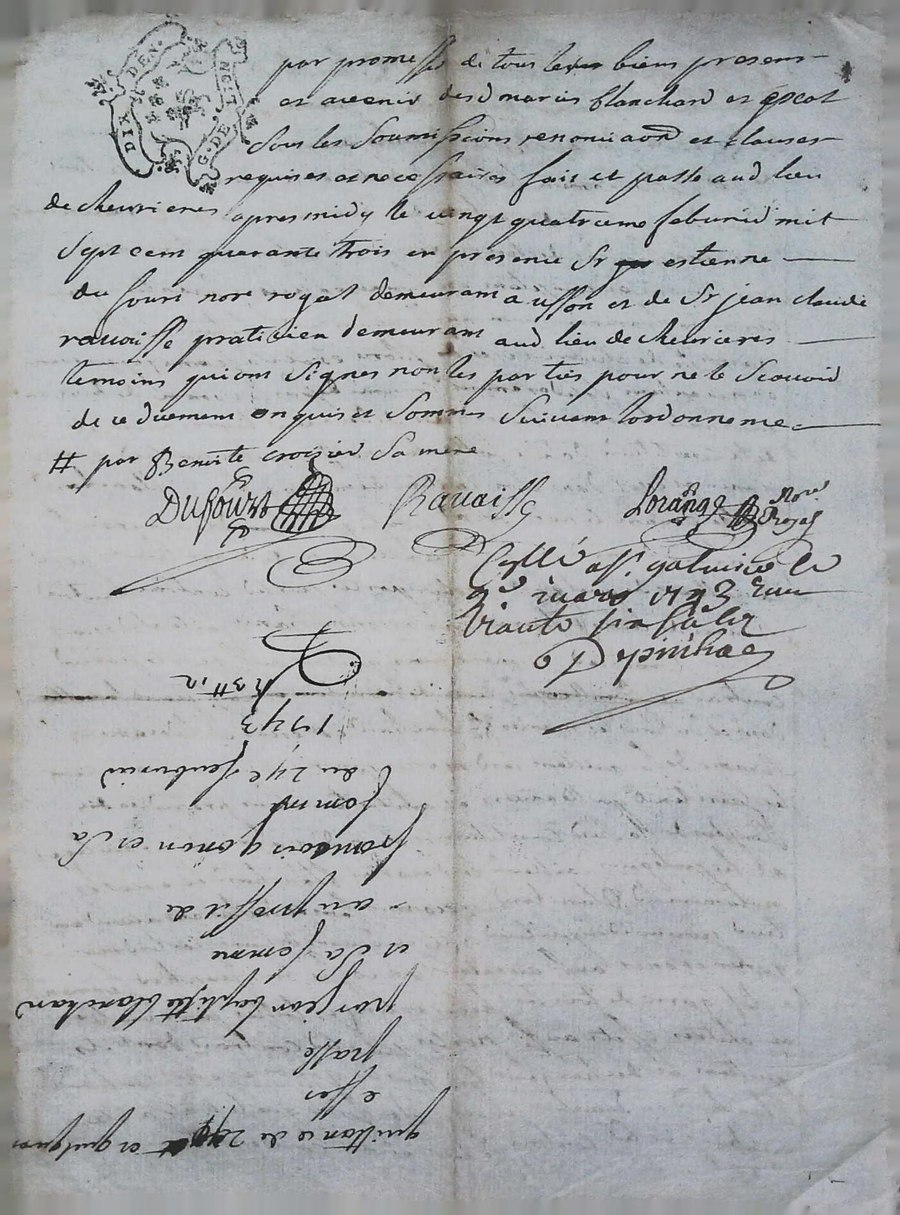 DIX DEN.
G. DE
par promesse de tous leurs biens presens
et avenir desd maries blanchard et
Sous les Soumissions renonciaons et clauses
requises et necessaires fait et passe aud lieu
de chevrieres apres midy le vingt quatrieme feburier mil
Sept cent quarante trois en presence de Sr estienne
du four nore royal demeurant a usson et de Sr jean claude
ravaisse praticien demeurant aud lieu de chevrieres
temoins qui ont Signes non les parties pour ne le Scavoir
de ce duement enquis et Sommes Suivant lordonnence
# par Benoite croisier Sa mere
Dufour
Ravaisse
Lorange Nore Royal
le
mars 1743
quittance de et quelques
effes
passé
par jean baptiste blanchard
et Sa femme
au proffit de
francois gonon et Sa
femme
du 24e feuburier
1743